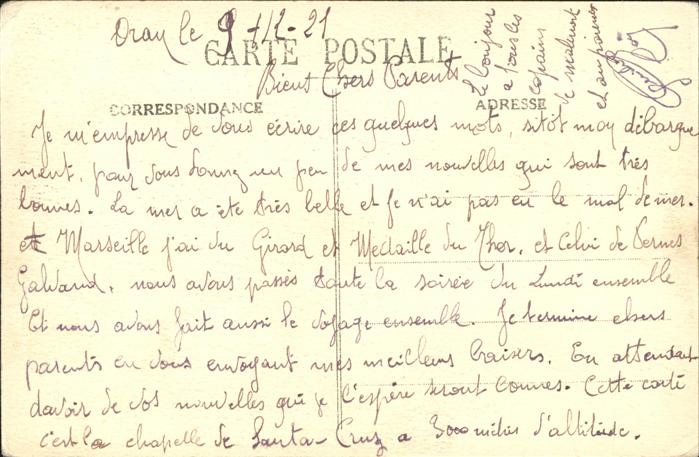 Oran le 9-12-21
CARTE POSTALE
Bient Chers Parents
CORRESPONDANCE
ADRESSE
Je m'empresse de vous écrire ces quelques mots, sitôt mon débarque
ment, pour vous donner un peu de mes nouvelles qui sont très
bonnes. La mer a été très belle et je n'ai pas eu le mal de mer.
et Marseille j'ai vu Girard et Médaille du Thor, et celui de Pernes
Galvand, nous avons passés toute la soirée du Lundi ensemble
Et nous avons fait aussi le voyage ensemble. Je termine chers
parents en vous envoyant mes meilleurs baisers. En attendant
d'avoir de vos nouvelles que je l'espère seront bonnes. Cette carte
c'est la chapelle de Santa-Cruz a 3000 mètres d'altitude.
Le bonjour
a tous les
copains
de malmort
et au